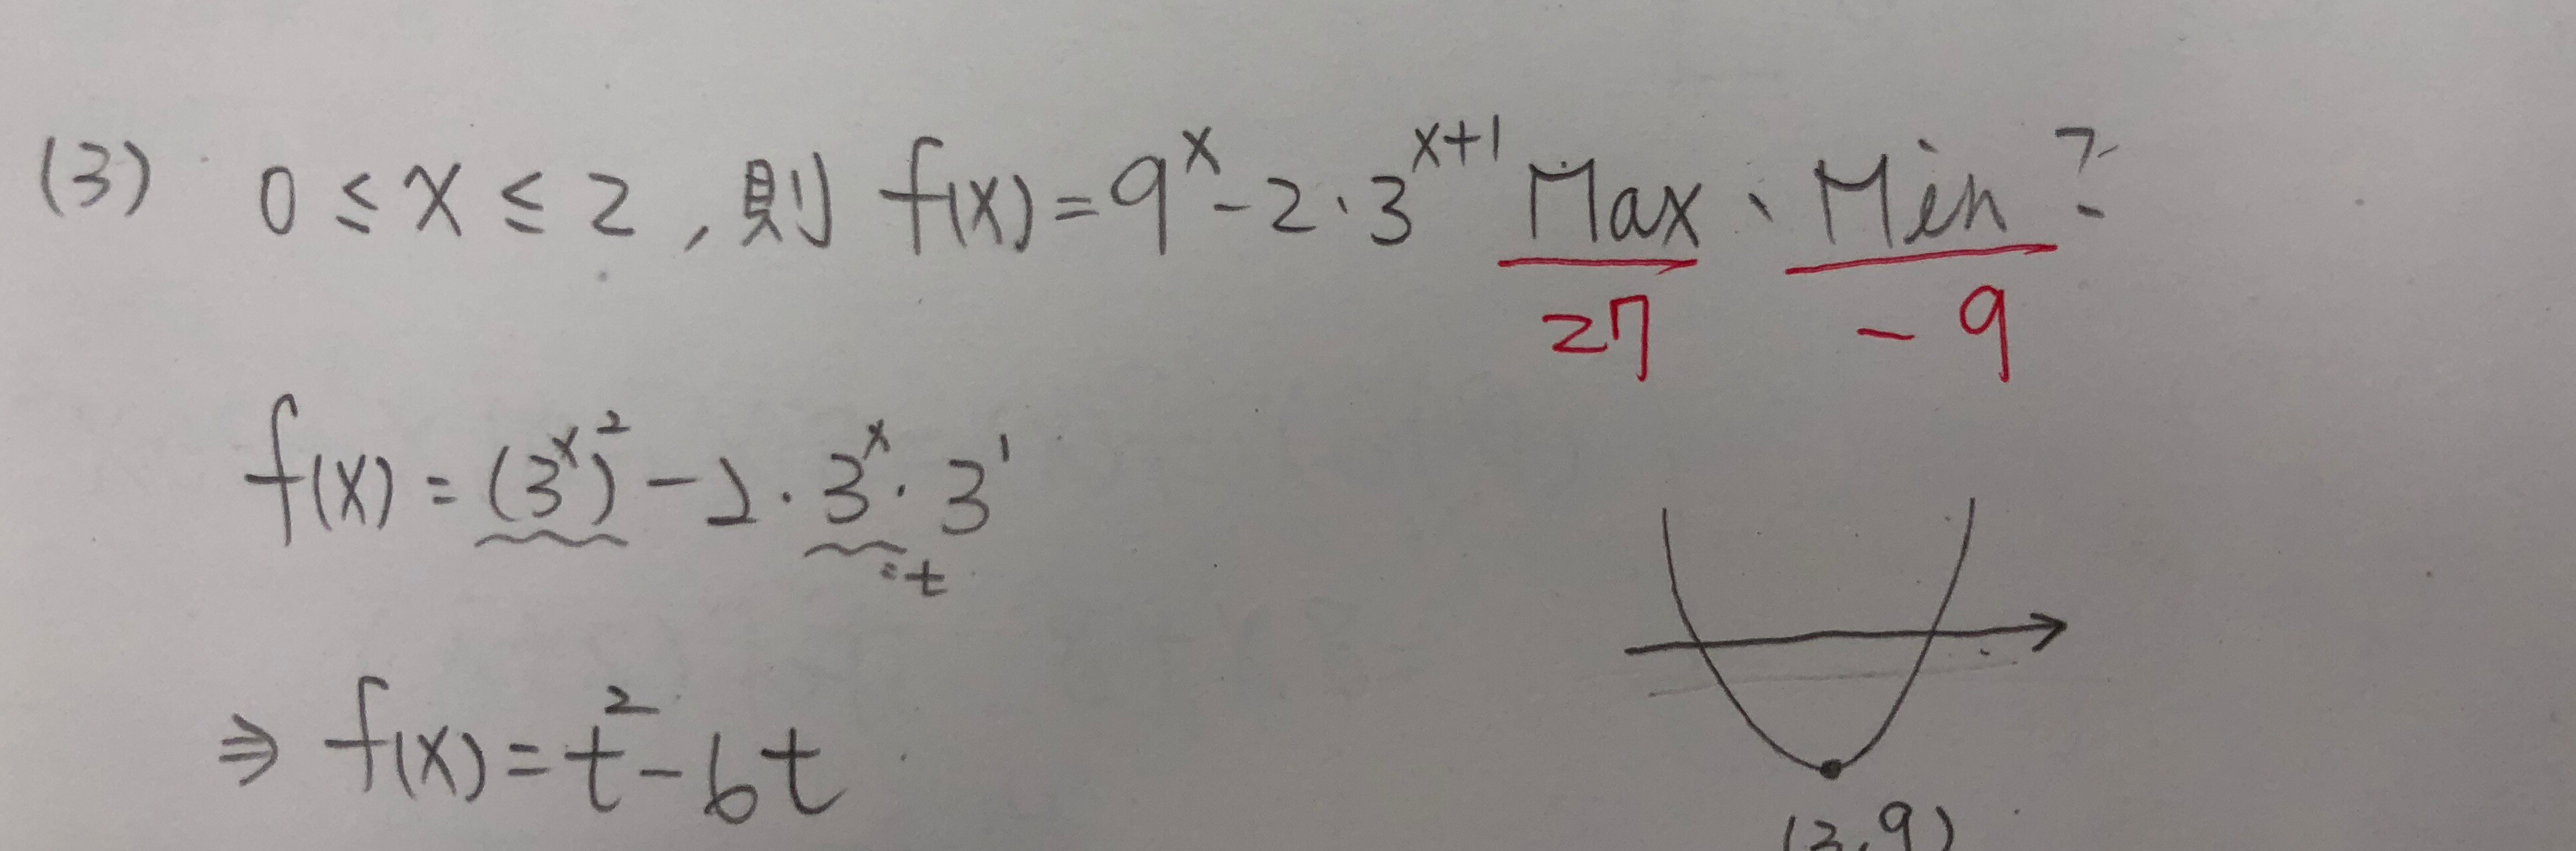 (3) 0 ≤ x ≤ 2 , 則 f(x) = 9^x - 2·3^(x+1) Max、Min?
27 -9
f(x) = (3^x)^2 - 2·3^x·3^1
=t
⇒ f(x) = t^2 - 6t